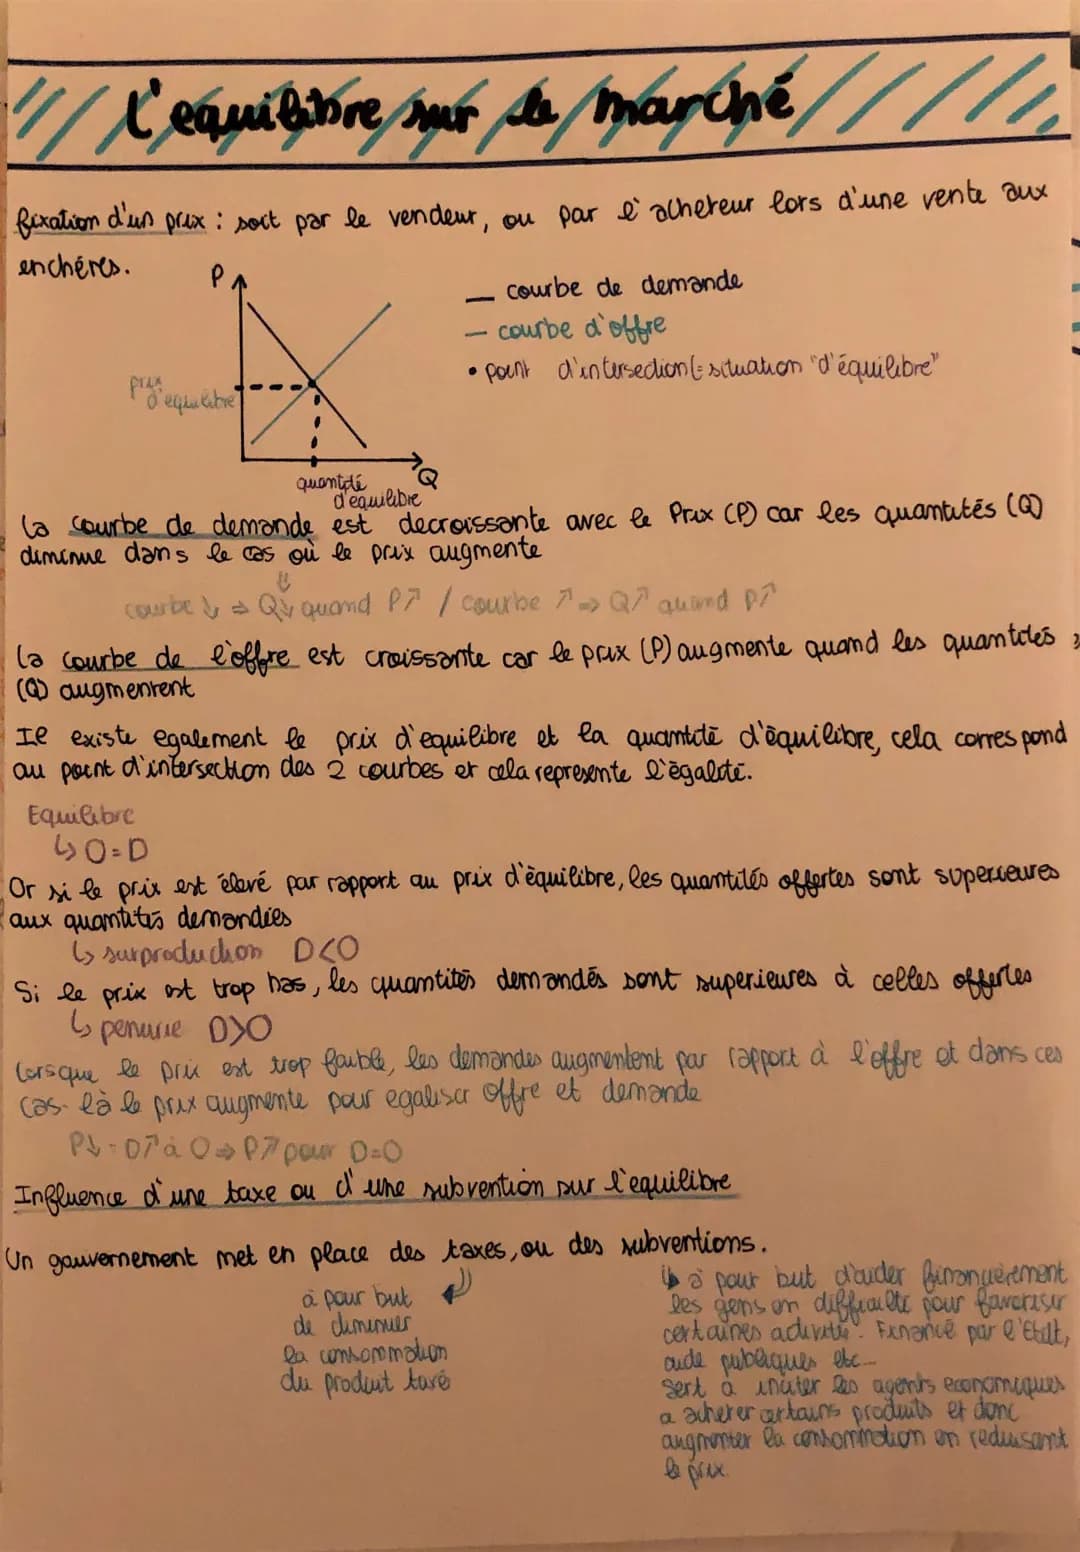 L'equilibre sur le marché
fixation d'un prix : soit par le vendeur, ou par l'acheteur lors d'une vente aux
enchères.
P
— courbe de demande
— courbe d'offre
• point d'intersection (= situation "d'équilibre"
prix
d'equilibre
Q
quantité
d'equilibre
La courbe de demande est decroissante avec le Prix (P) car les quantités (Q)
diminue dans le cas où le prix augmente
⇓
courbe ↓ ⇒ Q↓ quand P↗ / courbe ↗ ⇒ Q↗ quand P↗
La courbe de l'offre est croissante car le prix (P) augmente quand les quantités
(Q) augmentent
Il existe egalement le prix d'equilibre et la quantité d'équilibre, cela correspond
au point d'intersection des 2 courbes et cela represente l'égalité.
Equilibre
↳ O=D
Or si le prix est élevé par rapport au prix d'équilibre, les quantités offertes sont superieures
aux quantités demandées
↳ surproduction D<O
Si le prix est trop bas, les quantités demandés sont superieures à celles offertes
↳ penurie D>O
Lorsque le prix est trop faible, les demandes augmentent par rapport à l'offre et dans ces
cas-là le prix augmente pour egaliser offre et demande
P↓ = D↗ à O ⇒ P↗ pour D=O
Influence d'une taxe ou d'une subvention sur l'equilibre
Un gouvernement met en place des taxes, ou des subventions.
a pour but
de diminuer
la consommation
du produit taxé
↳ a pour but d'aider financièrement
les gens en difficulté pour favoriser
certaines activité. Financé par l'Etat,
aide publiques etc...
sert a inciter les agents economiques
a acheter certains produits et donc
augmenter la consommation en reduisant
le prix.